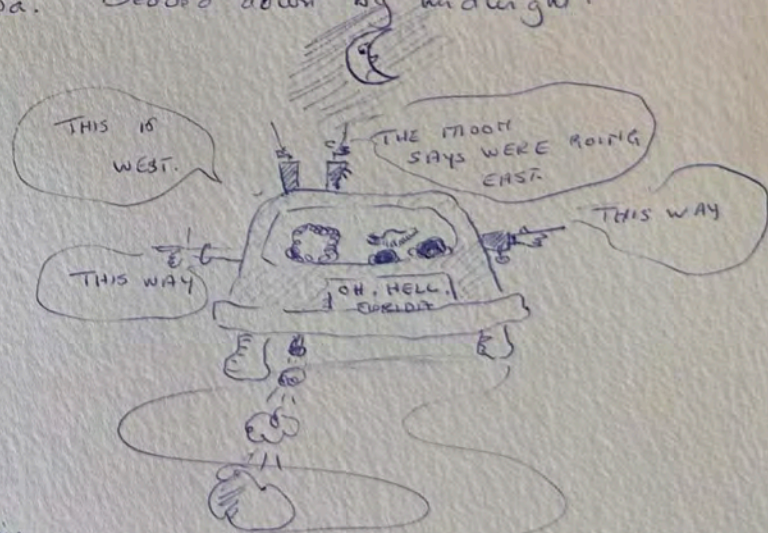 down by midnight.
THIS IS
WEST.
THE MOON
SAYS WERE GOING
EAST.
THIS WAY
THIS WAY
OH. HELL.
FLORIDA